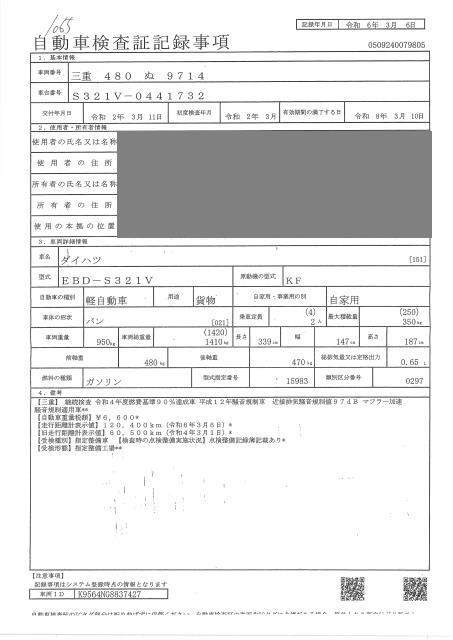 1065
記録年月日 令和 6年 3月 6日
自動車検査証記録事項
0509240079805
1．基本情報
車両番号 三重 480 ぬ 9714
車台番号 S321V-0441732
交付年月日 令和 2年 3月 11日 初度検査年月 令和 2年 3月 有効期間の満了する日 令和 8年 3月 10日
2．使用者・所有者情報
使用者の氏名又は名称
使用者の住所
所有者の氏名又は名称
所有者の住所
使用の本拠の位置
3．車両詳細情報
車名 ダイハツ [151]
型式 EBD-S321V 原動機の型式 KF
自動車の種別 軽自動車 用途 貨物 自家用・事業用の別 自家用
車体の形状 バン [021] 乗車定員 (4) 2人 最大積載量 (250) 350kg
車両重量 950kg 車両総重量 (1420) 1410kg 長さ 339cm 幅 147cm 高さ 187cm
前軸重 480kg 後軸重 470kg 総排気量又は定格出力 0.65 L
燃料の種類 ガソリン 型式指定番号 15983 類別区分番号 0297
4．備考
【三重】 継続検査 令和4年度燃費基準90％達成車 平成12年騒音規制車 近接排気騒音規制値97dB マフラー加速
騒音規制適用車**
【自動車重量税額】￥6，600*
【走行距離計表示値】120，400km（令和6年3月6日）*
【旧走行距離計表示値】60，500km（令和4年3月1日）*
【受検種別】指定整備車 【検査時の点検整備実施状況】点検整備記録簿記載あり*
【受検形態】指定整備工場**
【注意事項】
記録事項はシステム登録時点の情報となります
車両ID K9564NG8837427